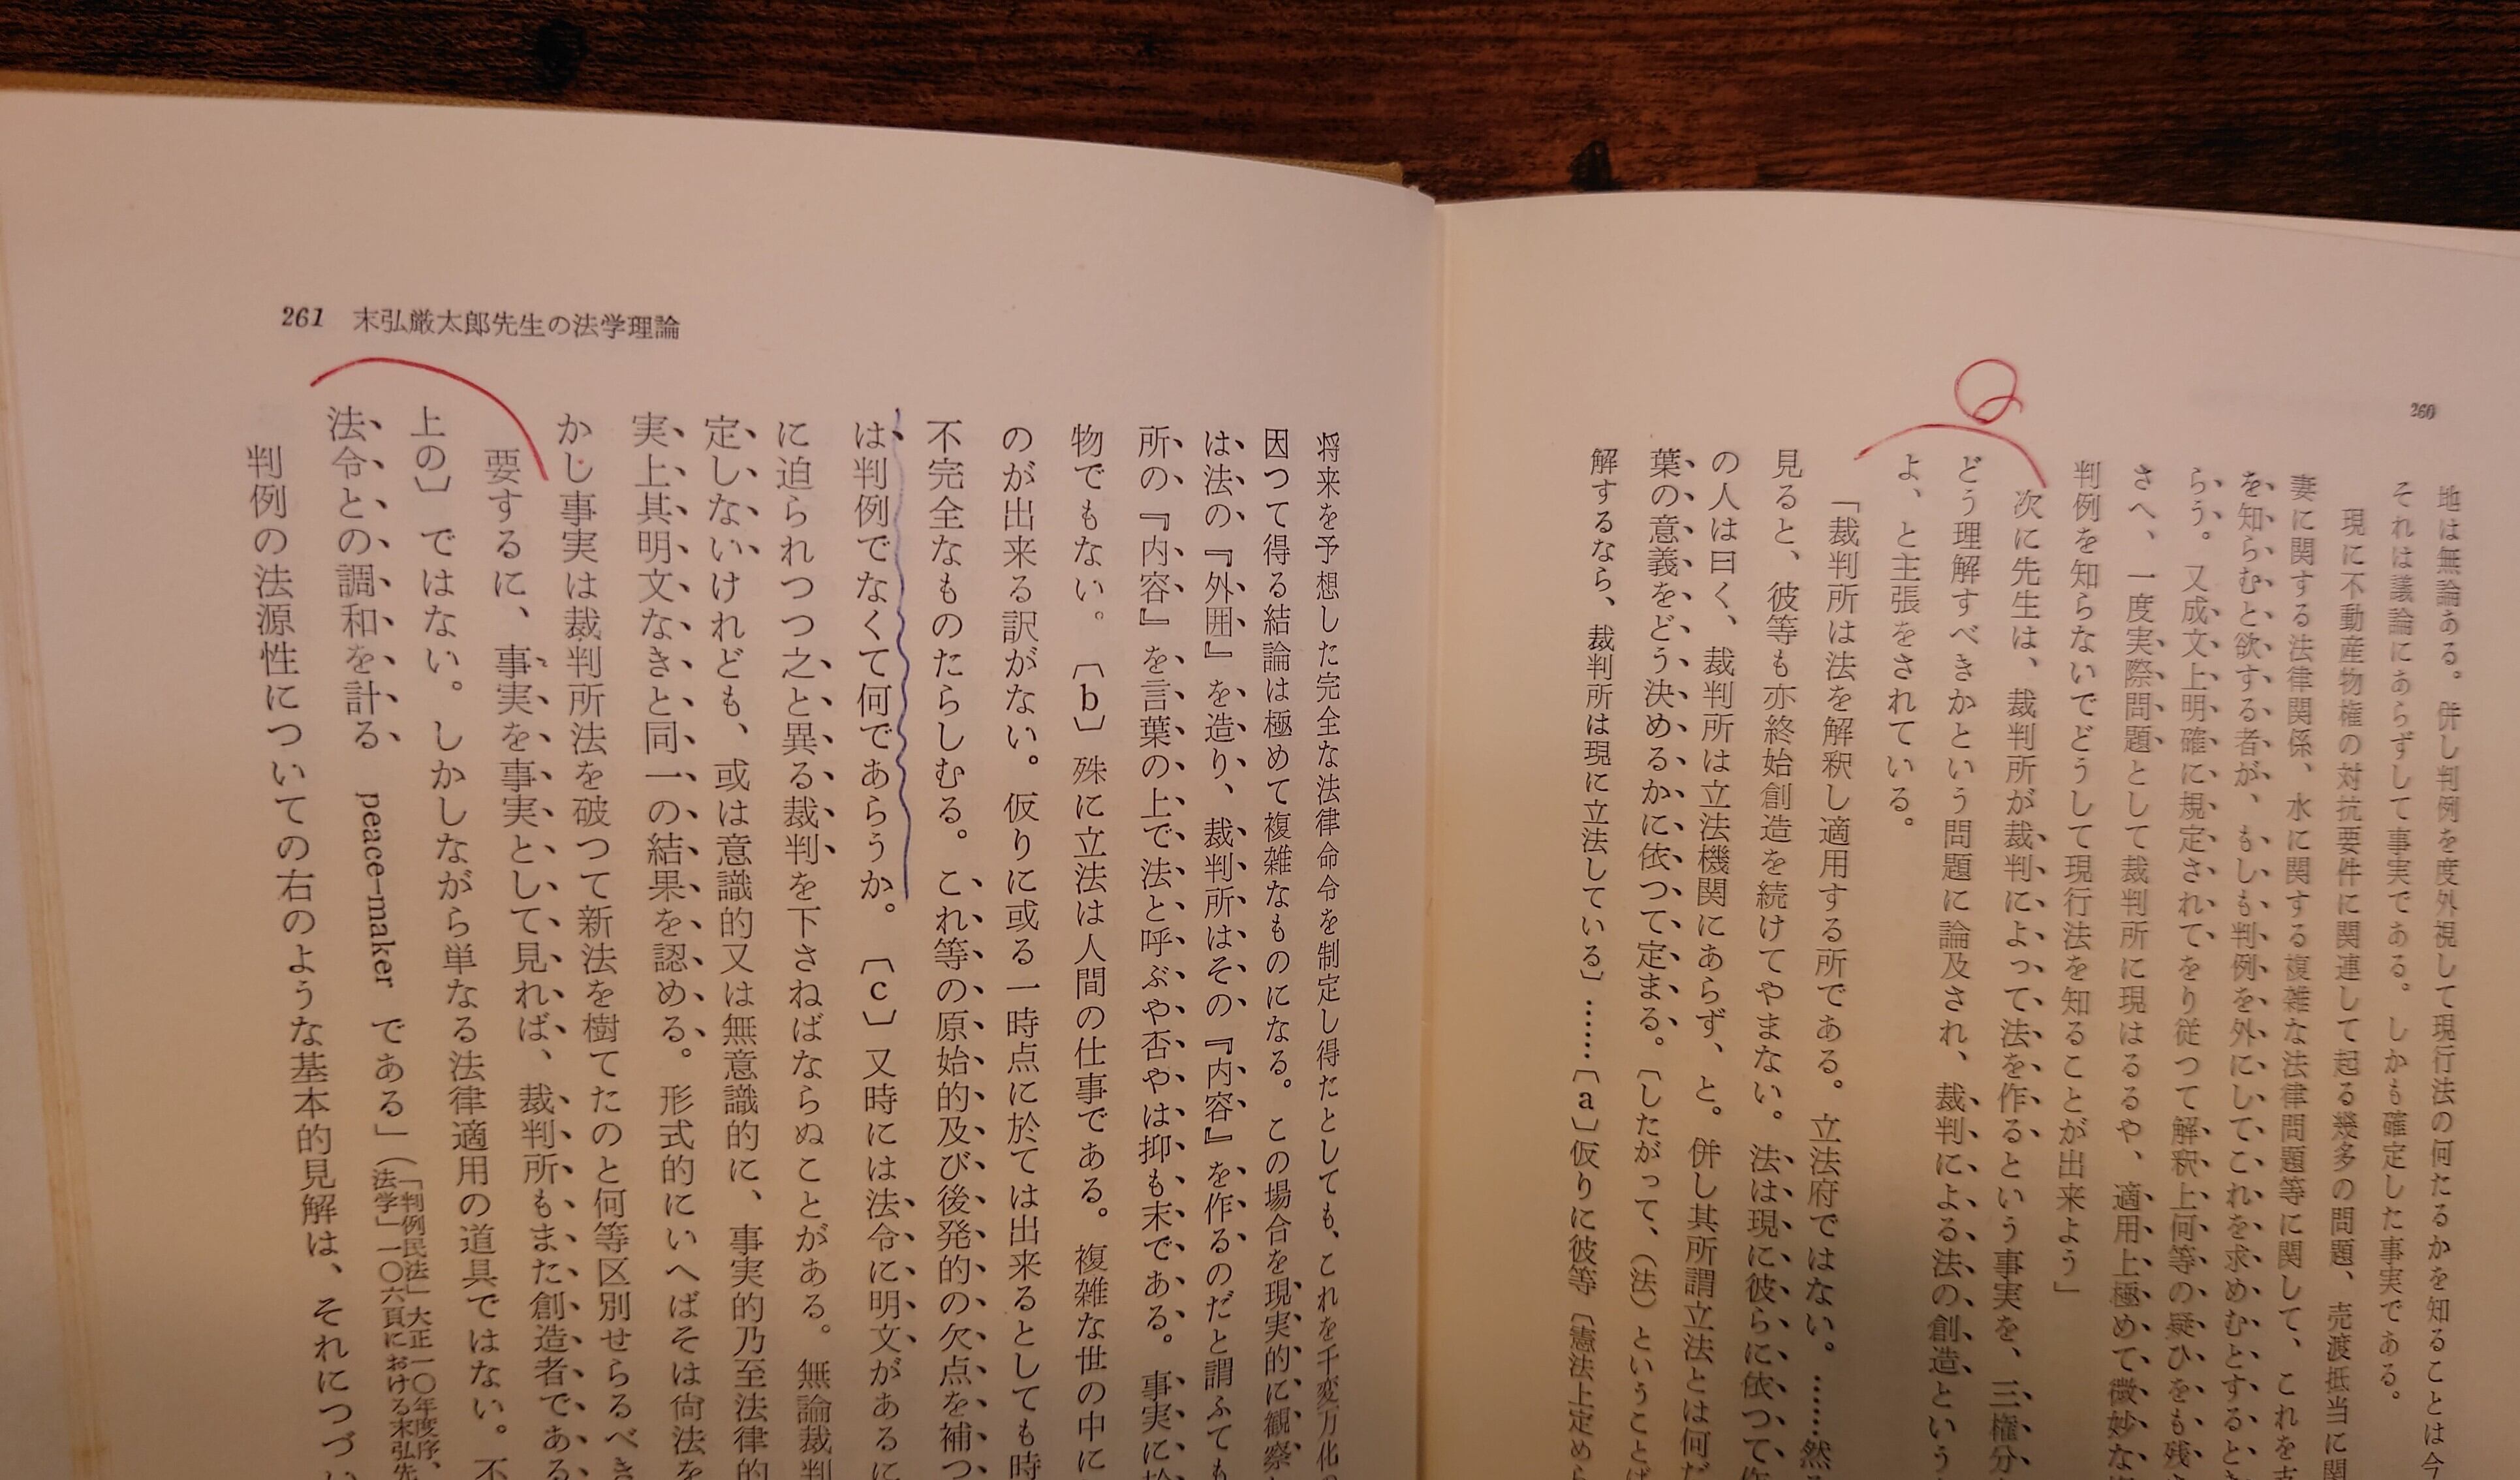 260
地は無論ある。併し判例を度外視して現行法の何たるかを知ることは今
それは議論にあらずして事実である。しかも確定した事実である。
現に不動産物権の対抗要件に関連して起る幾多の問題、売渡抵当に関
妻に関する法律関係、水に関する複雑な法律問題等に関して、これを
を知らむと欲する者が、もしも判例を外にしてこれを求めむとすると
らう。又成文上明確に規定されてをり従つて解釈上何等の疑ひをも残
さへ、一度実際問題として裁判所に現はるるや、適用上極めて微妙な
判例を知らないでどうして現行法を知ることが出来よう」
次に先生は、裁判所が裁判によって法を作るという事実を、三権分
どう理解すべきかという問題に論及され、裁判による法の創造という
よ、と主張をされている。
「裁判所は法を解釈し適用する所である。立法府ではない。……然
見ると、彼等も亦終始創造を続けてやまない。法は現に彼らに依つて作
の人は曰く、裁判所は立法機関にあらず、と。併し其所謂立法とは何だ
葉の意義をどう決めるかに依つて定まる。〔したがって、（法）ということば
解するなら、裁判所は現に立法している〕……〔a〕仮りに彼等〔憲法上定め
261 末弘厳太郎先生の法学理論
将来を予想した完全な法律命令を制定し得たとしても、これを千変万化
因つて得る結論は極めて複雑なものになる。この場合を現実的に観察
は法の『外囲』を造り、裁判所はその『内容』を作るのだと謂ふても
所の『内容』を言葉の上で法と呼ぶや否やは抑も末である。事実に於
物でもない。〔b〕殊に立法は人間の仕事である。複雑な世の中に
のが出来る訳がない。仮りに或る一時点に於ては出来るとしても時
不完全なものたらしむる。これ等の原始的及び後発的の欠点を補つ
は判例でなくて何であらうか。〔c〕又時には法令に明文があるに
に迫られつつ之と異る裁判を下さねばならぬことがある。無論裁判
定しないけれども、或は意識的又は無意識的に、事実的乃至法律的
実上其明文なきと同一の結果を認める。形式的にいへばそは尚法を
かし事実は裁判所法を破つて新法を樹てたのと何等区別せらるべき
要するに、事実を事実として見れば、裁判所もまた創造者である
上の〕ではない。しかしながら単なる法律適用の道具ではない。不
法令との調和を計る peace-maker である」（「判例民法」大正一〇年度序、
法学」一〇六頁における末弘先
判例の法源性についての右のような基本的見解は、それにつづい